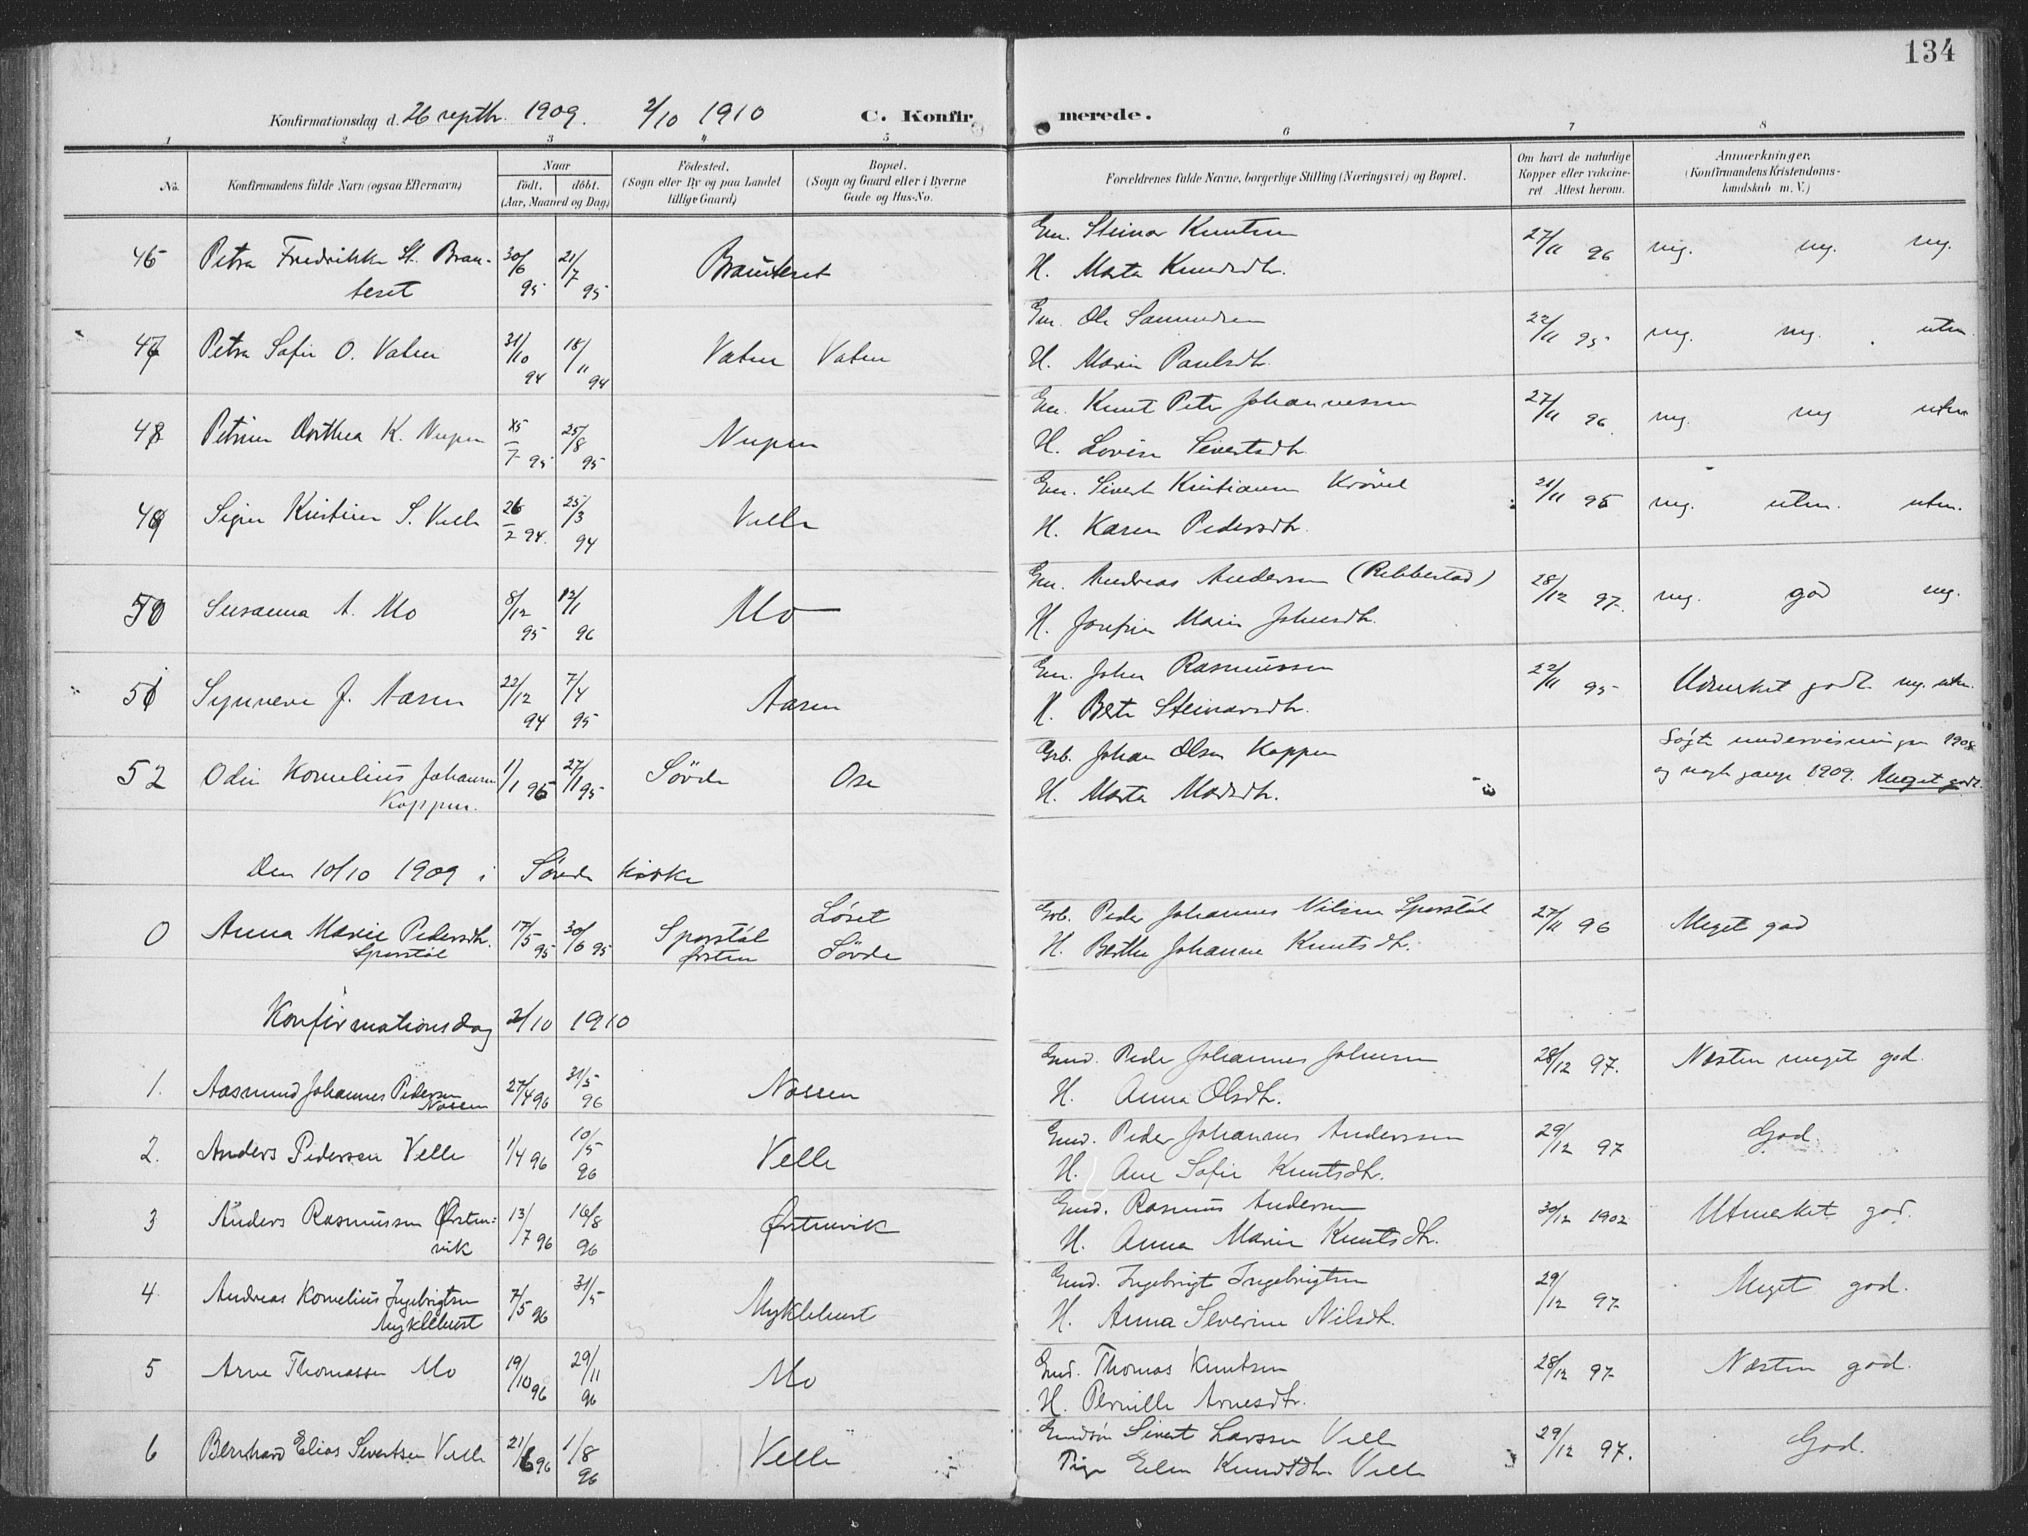 134
Konfirmationsdag d. 26 septbr. 1909. 2/10 1910 C. Konfirmerede.
1 2 3 4 5 6 7 8
No. Konfirmandens fulde Navn (ogsaa Efternavn) Naar födt. döbt. (Aar, Maaned og Dag) Födested. (Sogn eller By og paa Landet tillige Gaard) Bopæl. (Sogn og Gaard eller i Byerne Gade og Hus-No. Forældrenes fulde Navne, borgerlige Stilling (Næringsvei) og Bopæl. Om havt de naturlige Kopper eller vakcineret Attest herom. Anmærkninger. (Konfirmandens Kristendomskundskab m. V.)
46 Petra Fredrikke St. Brauteset 30/6 95 21/7 95 Brauteset Em. Steinar Knutsen 27/11 96 mg. mg. mg.
H. Marta Knudsdtr.
47 Petra Sofie O. Vatne 31/10 94 18/11 94 Vatne Vatne Em. Ole Samundsen 22/11 95 mg. mg. utm.
H. Marie Paulsdtr.
48 Petrine Dorthea K. Nupen 25/7 95 25/8 95 Nupen Em. Knut Peter Johannessen 27/11 96 mg. mg utm
H. Lovise Sivertsdtr.
49 Signe Kristine S. Velle 26/2 94. 25/3 94 Velle Em. Sivert Kristiansen Krövel 21/11 95 mg. utm. utm.
H. Karen Pedersdtr.
50 Susanna A. Mo 8/12 95 12/1 96 Mo Em. Andreas Andersen (Ribbestad) 28/12 97. mg. god mg.
H. Josefine Marie Johnsdtr.
51 Synneve J. Aasen 22/12 94 7/4 95 Aasen Em. John Rasmussen 22/11 95 Udmerket godt. mg. utm.
H. Berte Steinarsdtr.
52 Odin Kornelius Johansen Koppen. 1/1 95 27/11 95 Sövde Ose Grb. Johan Olsen Koppen Søgte undervisningen 1908
H. Marta Madsdtr. og nogle gange 1909. Meget godt.
Den 10/10 1909 i Sövde kirke
0 Anna Marie Pedersdtr. Sporstöl 17/5 95 30/6 95 Sporstöl Ørsten Löset Sövde Grb. Peder Johannes Nilsen Sporstöl 27/11 96 Meget god
H. Berthe Johanne Knutsdtr.
Konfirmationsdag 2/10 1910
1. Aasmund Johannes Pedersen Nossen 27/4 96 31/5 96 Nossen Gmd. Peder Johannes Johnsen 28/12 97. Næsten meget god.
H. Anna Olsdtr.
2. Anders Pedersen Velle 1/4 96 10/5 96 Velle Gmd. Peder Johannes Anderssen 29/12 97 God.
H. Ane Sofie Knutsdtr.
3 Anders Rasmussen Ørstenvik 13/7 96 16/8 96 Ørstenvik Gmd. Rasmus Andersen 30/12 1902 Utmerket god.
H. Anna Marie Knutsdtr.
4 Andreas Kornelius Ingebrigtsen Myklebust 7/5 96 31/5 Myklebust Gmd. Ingebrigt Ingebrigtsen 29/12 97. Meget god.
H. Anna Severine Nilsdtr.
5 Arne Thomassen Mo 19/10 96 29/11 96 Mo Gmd. Thomas Knutsen 28/12 97. Næsten god.
H. Pernille Arnesdtr.
6 Bernhard Elias Sivertsen Velle 21/6 96 1/8 96 Velle Gmdsön Sivert Larssen Velle 29/12 97. God.
Pige Elen Knudtdtr. Velle